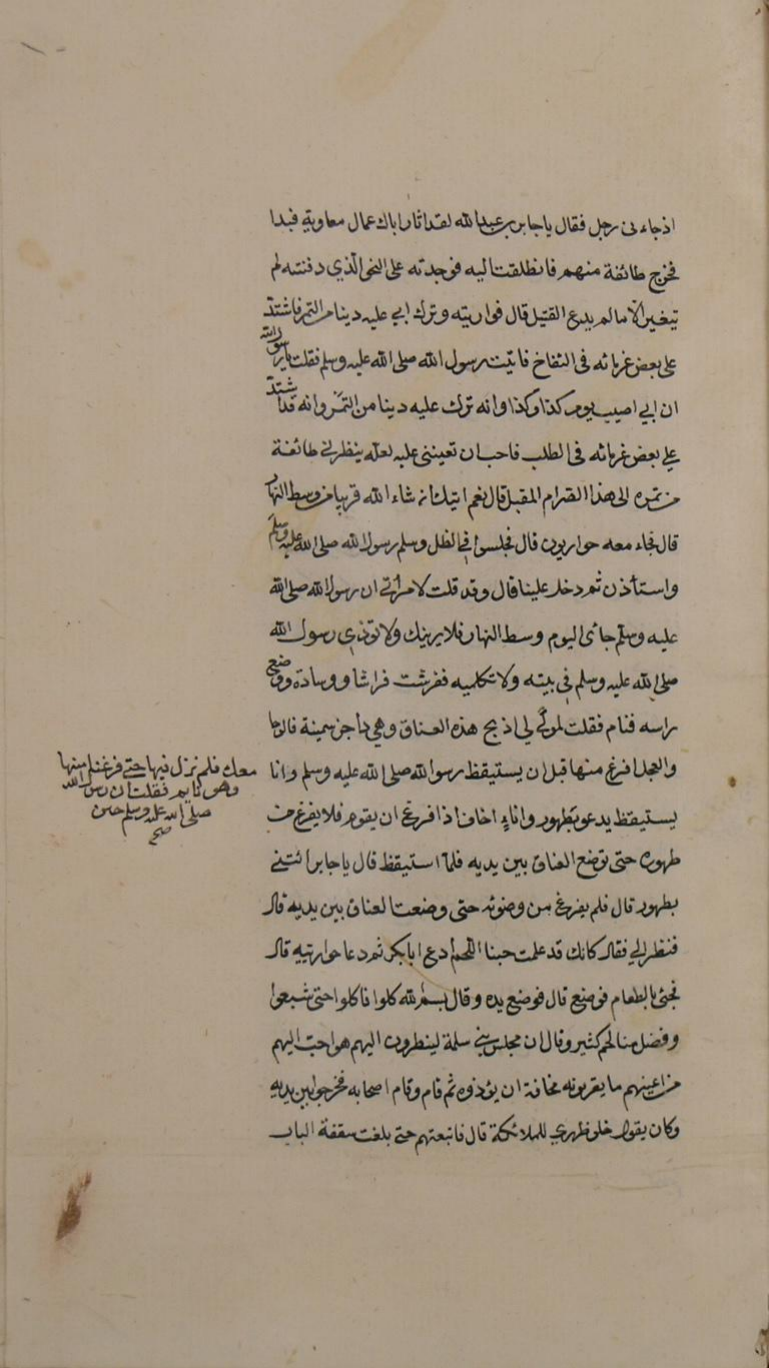 اذ جاءني رجل فقال يا جابر بن عبد الله لقد اثار اباك عمال معاوية فبدا
فخرج طائفة منهم فانطلقت اليه فوجدته على النحو الذي دفنته لم
يتغير الا ما لم يدع القتيل قال فواريته وترك ابي عليه دينا من التمر فاشتد
على بعض غرمائه في التقاضي فاتيت رسول الله صلى الله عليه وسلم فقلت يا رسول الله
ان ابي اصيب يوم كذا وكذا وانه ترك عليه دينا من التمر وانه قد اشتد
علي بعض غرمائه في الطلب فاحب ان تعينني عليه لعله ينظرني طائفة
من تمره الى هذا الصرام المقبل قال نعم اتيك ان شاء الله قريبا من وسط النهار
قال فجاء معه حواريون قال فجلسوا في الظل وسلم رسول الله صلى الله عليه وسلم
واستأذن ثم دخل علينا قال وقد قلت لامرأتي ان رسول الله صلى الله
عليه وسلم جائي اليوم وسط النهار فلا يرينك ولا تؤذي رسول الله
صلى الله عليه وسلم في بيته ولا تكلميه ففرشت فراشا ووسادة ووضع
راسه فنام فقلت لمولى لي اذبح هذه العناق وهي داجن سمينة فالوحا
والعجل افرغ منها قبل ان يستيقظ رسول الله صلى الله عليه وسلم وانا
معك فلم نزل فيها حتى فرغنا منها
وهو نايم فقلت ان رسول الله
صلى الله عليه وسلم حين
صح
يستيقظ يدعو بطهور وانا اخاف اذا فرغ ان يقوم فلا يفرغ من
طهوره حتى توضع العناق بين يديه فلما استيقظ قال يا جابر ائتني
بطهور قال فلم يفرغ من وضوئه حتى وضعت العناق بين يديه قال
فنظر الي فقال كانك قد علمت حبنا اللحم ادع ابا بكر ثم دعا حوارييه قال
فجئ بالطعام فوضع قال فوضع يده وقال بسم الله كلوا فاكلوا حتى شبعوا
وفضل منا لحم كثير وقال ان مجلس بني سلمة لينظرون اليهم هو احب اليهم
من اعينهم ما يقربونه مخافة ان يؤذوه ثم قام وقام اصحابه فخرجوا بين يديه
وكان يقول خلوا ظهري للملائكة قال فاتبعتهم حتى بلغت سقفة الباب